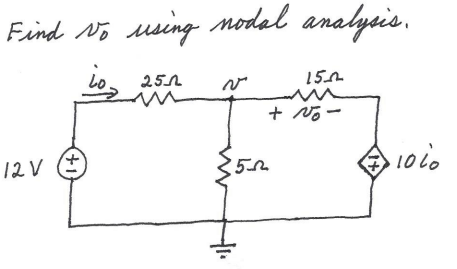 Find v₀ using nodal analysis.
i₀ 25Ω v 15Ω
+ v₀ −
12V + − 5Ω − + 10i₀